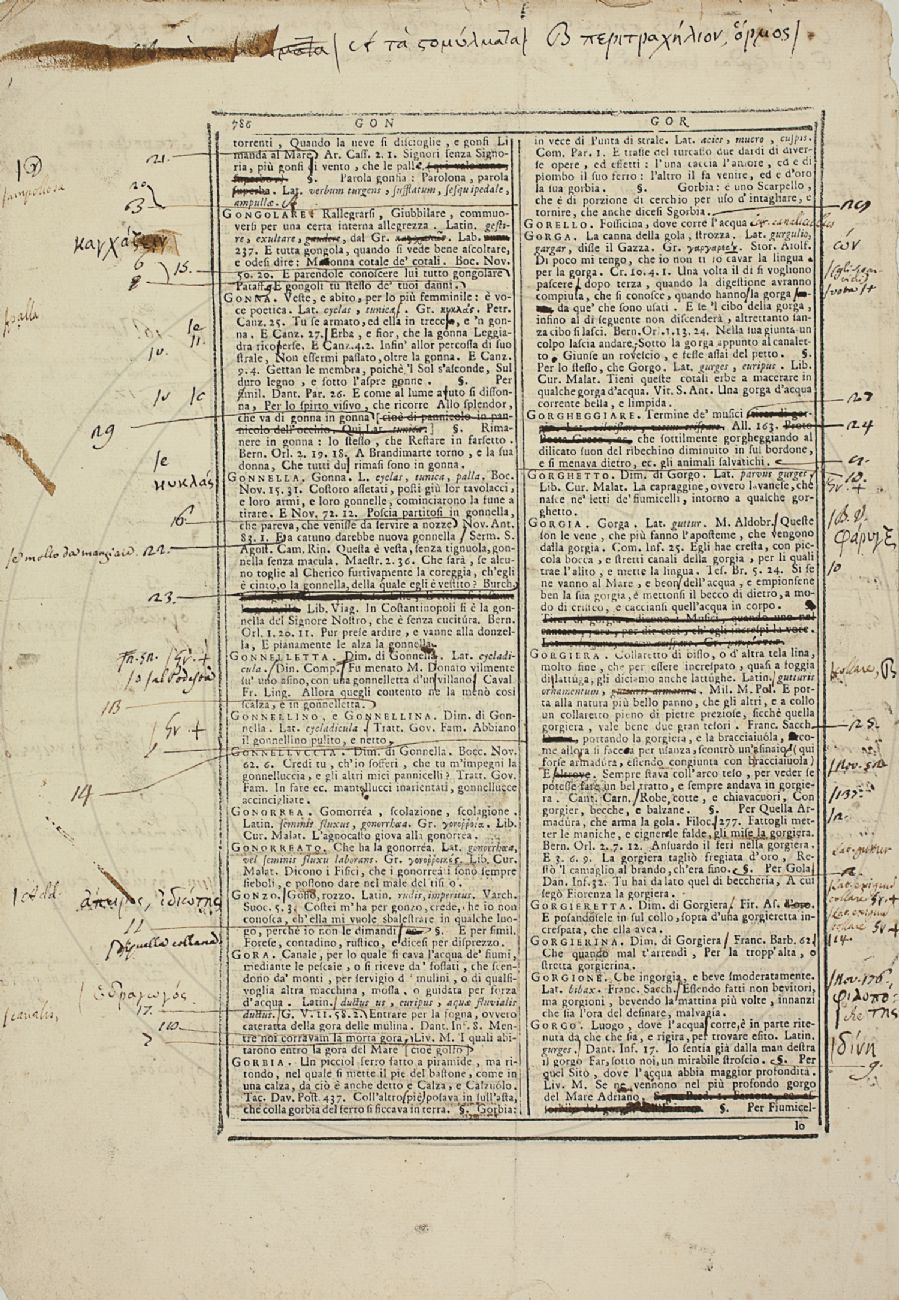 ϛ τὰ ϛομώματα β περιτραχήλιον, ὅρμος
786 GON
torrenti, Quando la neve si discioglie, e gonfi Li
manda al Mare Ar. Cass. 2. 1. Signori senza Signo-
ria, più gonfi di vento, che le palle
§. Parola gonfia: Parolona, parola
superba. Lat. verbum turgens, sufflatum, sesquipedale,
ampullæ.
GONGOLARE. Rallegrarsi, Giubbilare, commuo-
versi per una certa interna allegrezza. Latin. gesti-
re, exultare, gaudere, dal Gr. Lab.
237. E tutta gongola, quando si vede bene ascoltare,
o odesi dire: Madonna cotale de' cotali. Boc. Nov.
50. 20. E parendole conoscere lui tutto gongolare
Pataff. E gongoli tu stesso de' tuoi danni.
GONNA. Veste, e abito, per lo più femminile: è vo-
ce poetica. Lat. cyclas, tunica. Gr. κυκλάς. Petr.
Canz. 25. Tu se armato, ed ella in trecce, e 'n gon-
na. E Canz. 27. Erba, e fior, che la gonna Leggia-
dra ricoperse. E Canz. 4. 2. Infin' allor percossa di suo
strale, Non essermi passato, oltre la gonna. E Canz.
9. 4. Gettan le membra, poichè 'l Sol s'asconde, Sul
duro legno, e sotto l'aspre gonne. §. Per
simil. Dant. Par. 26. E come al lume acuto si disson-
na, Per lo spirto visivo, che ricorre Allo splendor,
che va di gonna in gonna [cioè di pannicolo in pan-
nicolo dell'occhio. Qui Lat. tunica.] §. Rima-
nere in gonna: lo stesso, che Restare in farsetto.
Bern. Orl. 2. 19. 18. A Brandimarte torno, e la sua
donna, Che tutti duo rimasi sono in gonna.
GONNELLA. Gonna. L. cyclas, tunica, palla. Boc.
Nov. 15. 31. Costoro assetati, posti giù lor tavolacci,
e loro armi, e loro gonnelle, cominciarono la fune a
tirare. E Nov. 72. 12. Poscia partitosi in gonnella,
che pareva, che venisse da servire a nozze Nov. Ant.
83. 1. Era catuno darebbe nuova gonnella Serm. S.
Agost. Cam. Rin. Questa è vesta, senza tignuola, gon-
nella senza macula. Maestr. 2. 36. Che sarà, se alcu-
no toglie al Cherico furtivamente la coreggia, ch'egli
è cinto, o la gonnella, della quale egli è vestito? Burch.
Lib. Viag. In Costantinopoli si è la gon-
nella del Signore Nostro, che è senza cucitura. Bern.
Orl. 1. 20. 11. Pur prese ardire, e vanne alla donzel-
la, E pianamente le alza la gonnella.
GONNELLETTA. Dim. di Gonnella. Lat. cycladi-
cula. Din. Comp. Fu menato M. Donato vilmente
su' uno asino, con una gonnelletta d'un villano Caval.
Fr. Ling. Allora quegli contento ne la menò così
scalza, e in gonnelletta.
GONNELLINO, e GONNELLINA. Dim. di Gon-
nella. Lat. cycladicula Tratt. Gov. Fam. Abbiano
il gonnellino pulito, e netto.
GONNELLUCCIA. Dim. di Gonnella. Bocc. Nov.
62. 6. Credi tu, ch'io sofferi, che tu m'impegni la
gonnelluccia, e gli altri miei pannicelli? Tratt. Gov.
Fam. In fare ec. mantellucci inarientati, gonnellucce
accincigliate.
GONORREA. Gomorréa, scolazione, scolagione.
Latin. seminis fluxus, gonorrhæa. Gr. γονόῤῥοια. Lib.
Cur. Malat. L'agnocasto giova alla gonorrea.
GONORREATO. Che ha la gonorrea. Lat. gonorrhæa,
vel seminis fluxu laborans. Gr. γονοῤῥοικός. Lib. Cur.
Malat. Dicono i Fisici, che i gonorreati sono sempre
fieboli, e possono dare nel male del tisico.
GONZO. Gosso, rozzo. Latin. rudis, imperitus. Varch.
Suoc. 5. 3. Costei m'ha per gonzo, crede, che io non
conosca, ch'ella mi vuole sbalestrare in qualche luo-
go, perchè io non le dimandi §. E per simil.
Forese, contadino, rustico, e dicesi per disprezzo.
GORA. Canale, per lo quale si cava l'acqua de' fiumi,
mediante le pescaie, o si riceve da' fossati, che scen-
dono da' monti, per servigio d' mulini, o di quals-
voglia altra macchina, mossa, o guidata per forza
d'acqua. Latin. ductus us, euripus, aquæ fluvialis
ductus. G. V. 11. 58. 2. Entrare per la fogna, ovvero
cateratta della gora delle mulina. Dant. Inf. 8. Men-
tre noi corravam la morta gora, Liv. M. I quali abi-
tarono entro la gora del Mare [cioè golfo]
GORBIA. Un picciol ferro fatto a piramide, ma ri-
tondo, nel quale si mette il piè del bastone, come in
una calza, da ciò è anche detto e Calza, e Calzuolo.
Tac. Dav. Post. 437. Coll'altro piè posava in sull'asta,
che colla gorbia del ferro si ficcava in terra. §. Gorbia:
GOR
in vece di Punta di strale. Lat. acies, mucro, cuspis.
Com. Par. 1. E trasse del turcasso due dardi di diver-
se opere, ed effetti: l'una caccia l'amore, ed è di
piombo il suo ferro: l'altro il fa venire, ed è d'oro
la sua gorbia. §. Gorbia: è uno Scarpello,
che è di porzione di cerchio per uso d'intagliare, e
tornire, che anche dicesi Sgorbia.
GORELLO. Fossicina, dove corre l'acqua
GORGA. La canna della gola, strozza. Lat. gurgulio,
gargar, disse il Gazza. Gr. γαργαρεὼν. Stor. Aiolf.
Di poco mi tengo, che io non ti so cavar la lingua
per la gorga. Cr. 10. 4. 1. Una volta il dì si vogliono
pascere dopo terza, quando la digestione avranno
compiuta, che si conosce, quando hanno la gorga
da que' che sono usati. E se 'l cibo della gorga,
infino al dì seguente non discenderà, altrettanto san-
za cibo si lasci. Bern. Orl. 1. 13. 24. Nella sua giunta un
colpo lascia andare, Sotto la gorga appunto al canalet-
to. Giunse un rovescio, e fesse assai del petto. §.
Per lo stesso, che Gorgo. Lat. gurges, euripus. Lib.
Cur. Malat. Tieni queste cotali erbe a macerare in
qualche gorga d'acqua. Vit. S. Ant. Una gorga d'acqua
corrente bella, e limpida.
GORGHEGGIARE. Termine de' musici
All. 163.
che sottilmente gorgheggiando al
dilicato suon del ribechino diminuito in sul bordone,
e si menava dietro, ec. gli animali salvatichi.
GORGHETTO. Dim. di Gorgo. Lat. parvus gurges.
Lib. Cur. Malat. La capraggine, ovvero lavanese, che
nasce ne' letti de' fiumicelli, intorno a qualche gor-
ghetto.
GORGIA. Gorga. Lat. guttur. M. Aldobr. Queste
son le vene, che più fanno l'aposteme, che vengono
dalla gorgia. Com. Inf. 25. Egli hae cresta, con pic-
cola bocca, e stretti canali della gorgia, per li quali
trae l'alito, e mette la lingua. Tes. Br. 5. 24. Si se
ne vanno al Mare, e beon dell'acqua, e empionsene
ben la sua gorgia, e mettonsi il becco di dietro, a mo-
do di cristeo, e caccianfi quell'acqua in corpo.
GORGIERA. Collaretto di bisso, o d'altra tela lina,
molto fine, che per essere increspato, quasi a foggia
di lattuga, gli diciamo anche lattughe. Latin. gutturis
ornamentum, gutturis armatura. Mil. M. Pol. E por-
ta alla natura più bello panno, che gli altri, e a collo
un collaretto pieno di pietre preziose, sicchè quella
gorgiera, vale bene due gran tesori. Franc. Sacch.
portando la gorgiera, e la bracciaiuola,
come allora si faceva per usanza, scontrò un'asinaio (qui
forse armadura, essendo congiunta con bracciaiuola)
E altrove. Sempre stava coll'arco teso, per veder se
potesse fare un bel tratto, e sempre andava in gorgie-
ra. Cant. Carn. Robe, cotte, e chiavacuori, Con
gorgier, becche, e balzane. §. Per Quella Ar-
madura, che arma la gola. Filoc. 277. Fattogli met-
ter le maniche, e cignerele falde, gli mise la gorgiera.
Bern. Orl. 2. 7. 12. Ansuardo il ferì nella gorgiera.
E 3. 6. 9. La gorgiera tagliò fregiata d'oro, Re-
stò 'l camaglio al brando, ch'era fino. §. Per Gola
Dan. Inf. 32. Tu hai da lato quel di beccheria, A cui
segò Fiorenza la gorgiera.
GORGIERETTA. Dim. di Gorgiera. Fir. As.
E posandosele in sul collo, sopra d'una gorgieretta in-
crespata, che ella avea.
GORGIERINA. Dim. di Gorgiera Franc. Barb. 62.
Che quando mal t'arrendi, Per la tropp'alta, o
stretta gorgierina.
GORGIONE. Che ingorgia, e beve smoderatamente.
Lat. bibax. Franc. Sacch. Essendo fatti non bevitori,
ma gorgioni, bevendo la mattina più volte, innanzi
che sia l'ora del desinare, malvagìa.
GORGO. Luogo, dove l'acqua corre, è in parte rite-
nuta da che che sia, e rigira, per trovare esito. Latin.
gurges. Dant. Inf. 17. Io sentia già dalla man destra
il gorgo Far, sotto noi, un mirabile stroscio. §. Per
quel Sito, dove l'acqua abbia maggior profondità.
Liv. M. Se ne vennono nel più profondo gorgo
del Mare Adriano,
§. Per Fiumicel-
lo
21.
20
63
καγχάζειν
6
15.
8
palla
29
κυκλάς
16.
se molto da mangiare. 22.
23.
113
14
ἄπειρος, ἰδιώτης
Quella collana
ὑδραγωγός
17.
canalis,
110
27
24
φάρυγξ
10
collare, β
25.
Nov. 52
113
Lat. guttur
14.
Nov. 176
φιλοπό-
της
δίνη
9.